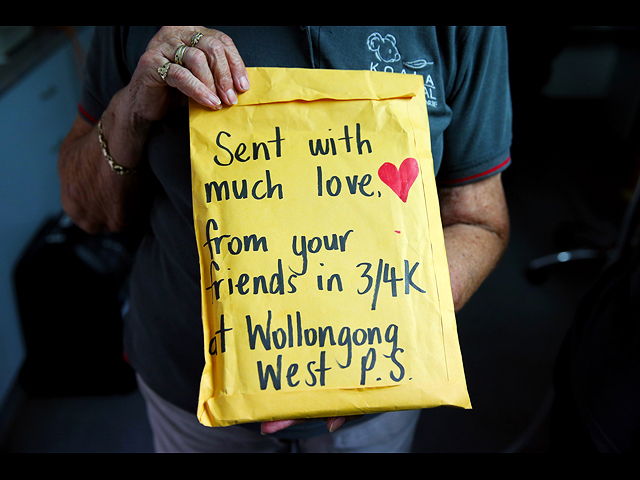 KOALA
Sent with
much love.
from your
friends in 3/4K
at Wollongong
West P.S.